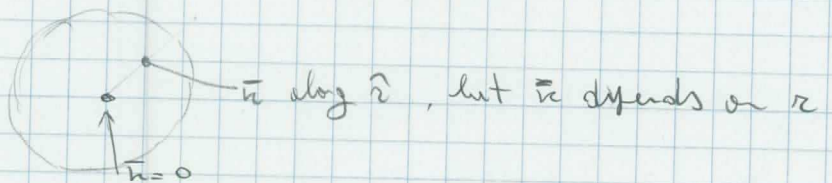 ū along r̂, but ū depends on r
ū = 0